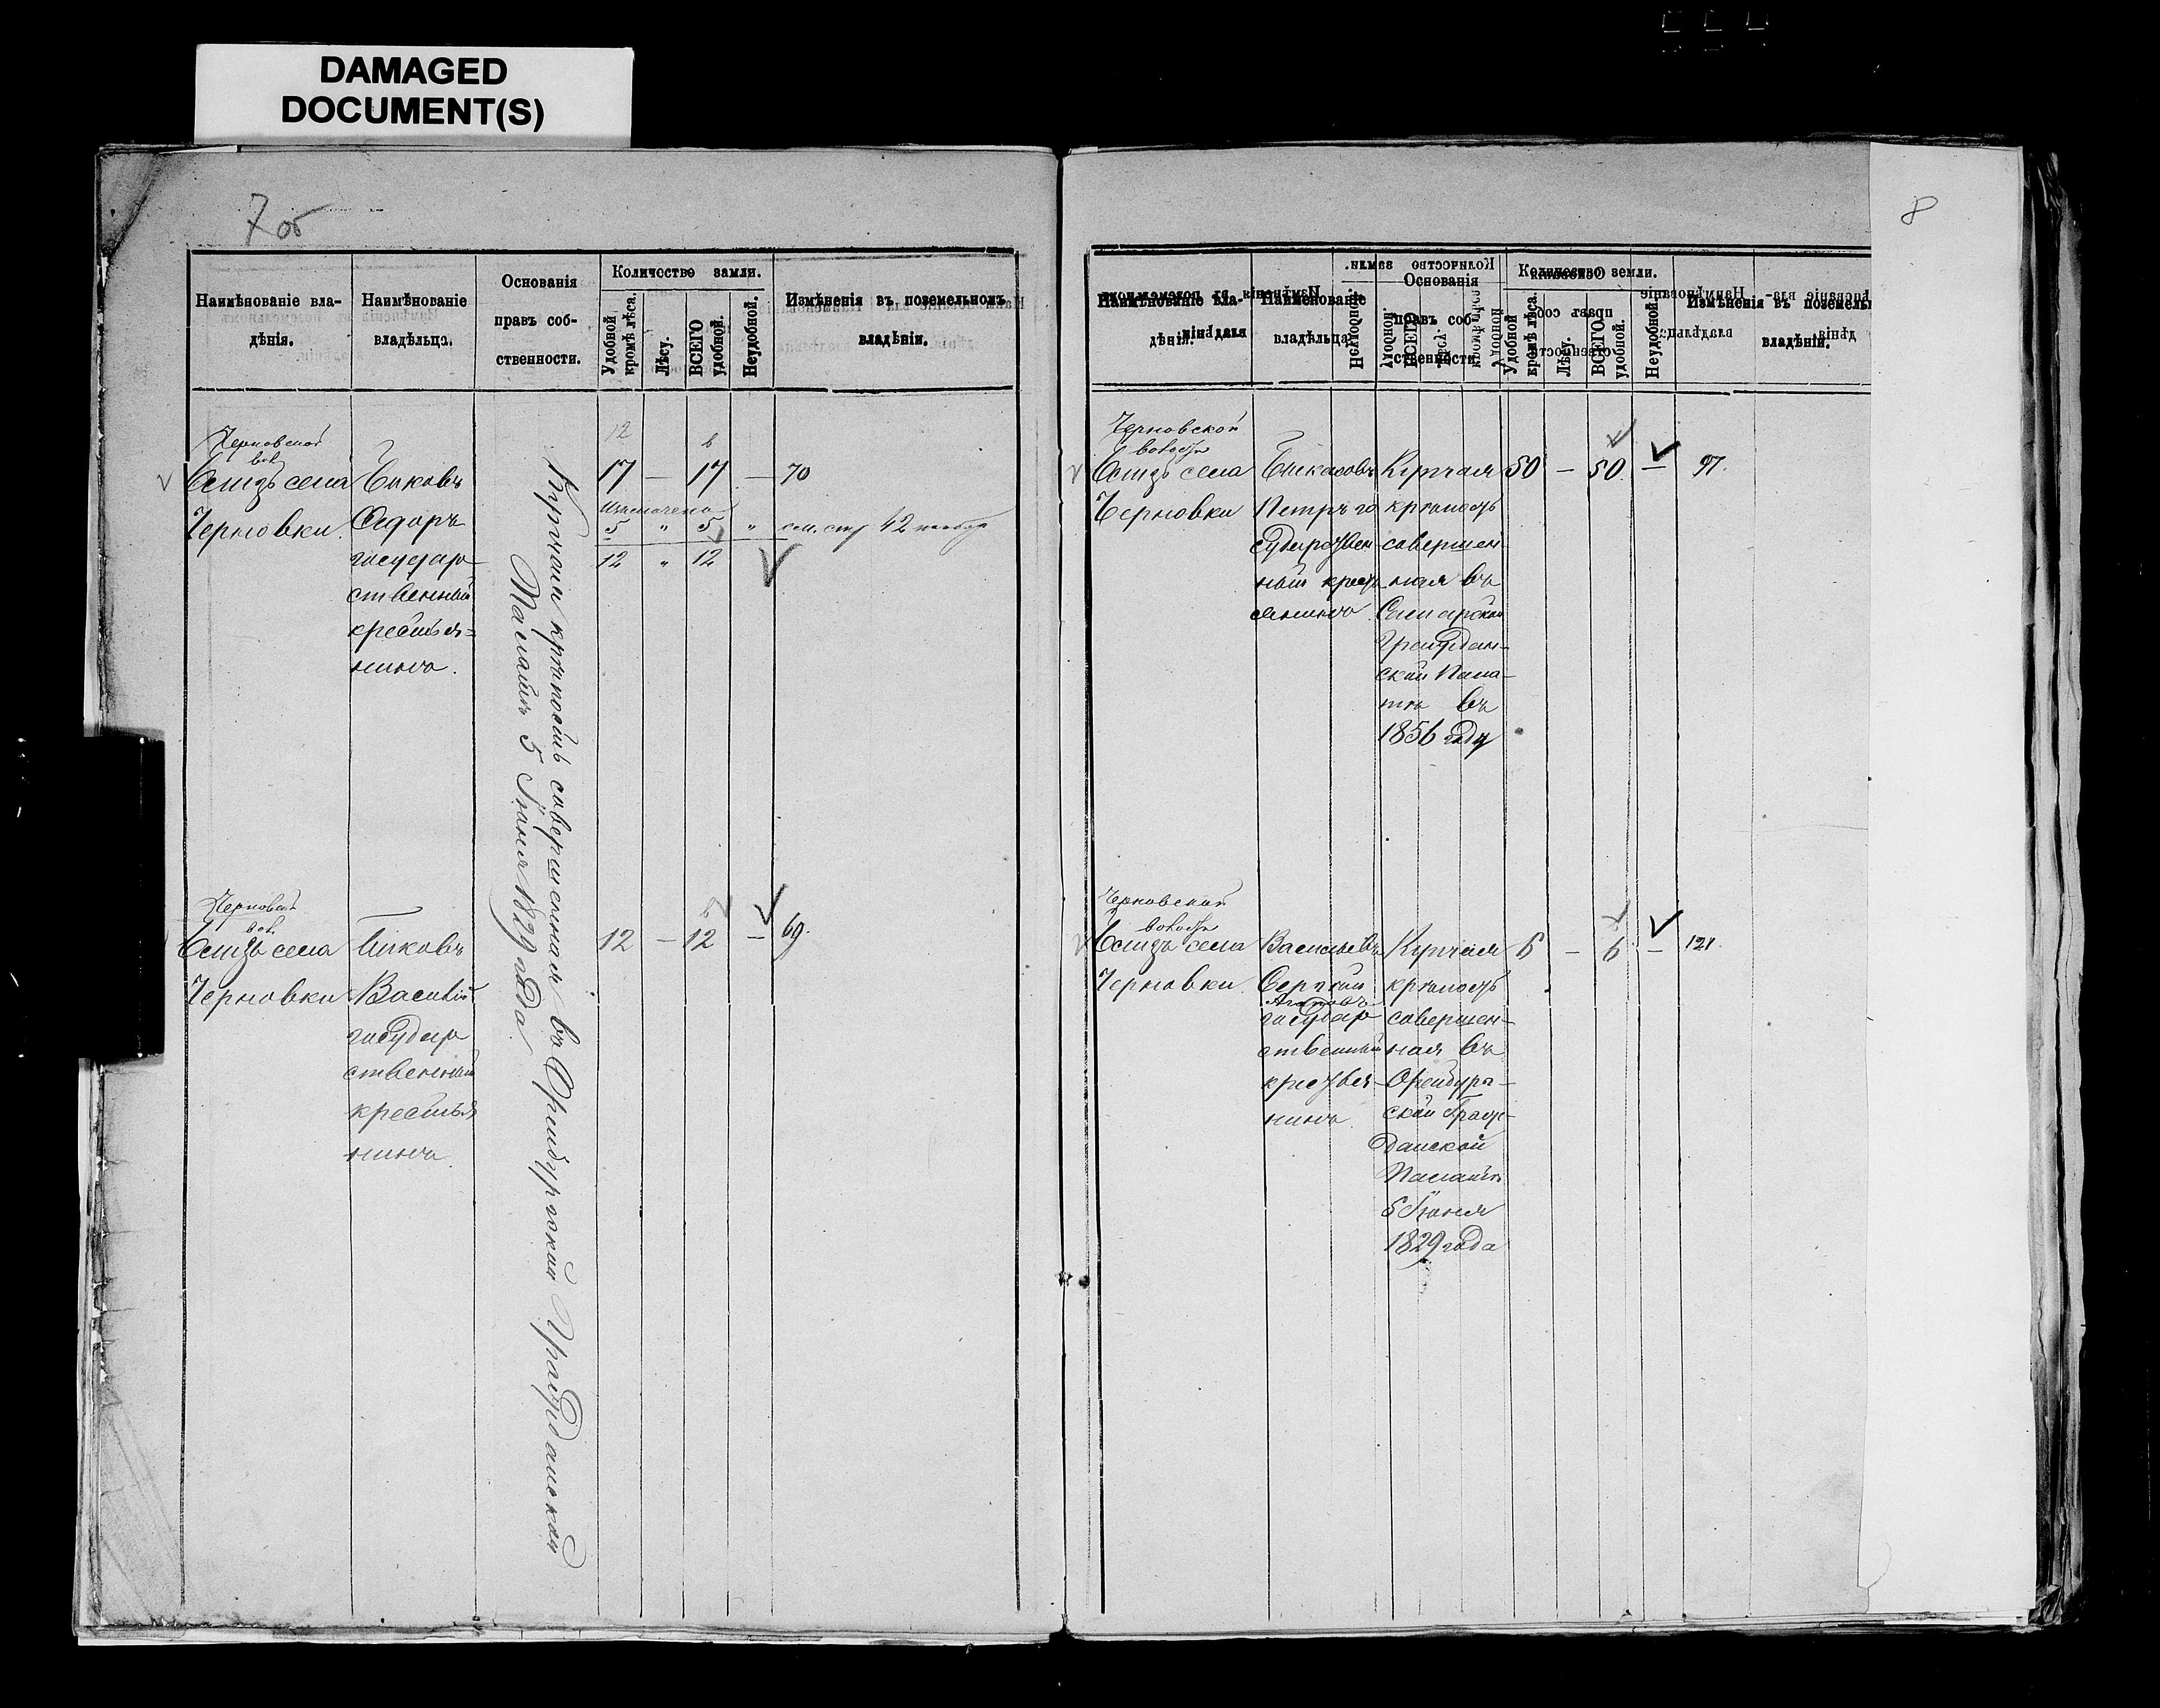 DAMAGED
DOCUMENT(S)
7об
Наимѣнованіе вла-
дѣнія.
Наимѣнованіе
владѣльца.
Основанія
правъ соб-
ственности.
Количество земли.
Удобной
кромѣ лѣса.
Лѣсу.
ВСЕГО
удобной.
Неудобной.
Измѣненія въ поземельномъ
владѣніи.
Черновской
вол.
Близъ села
Черновки
Быковъ
Ѳедоръ
государ-
ственный
крестья=
нинъ.
Купчая крѣпость совершенная въ Оренбургской Гражданской
Палатѣ 5 Іюня 1829 года.
12
17 — 17 — 70
Исключено
5 " 5 " см. стр 42
12 " 12
Черновской
вол.
Близъ села
Черновки
Быковъ
Василій
государ
ственный
крестья
нинъ
12 — 12 — 69.
8
Наимѣнованіе вла-
дѣнія.
Наимѣнованіе
владѣльца.
Основанія
правъ соб-
ственности.
Количество земли.
Удобной
кромѣ лѣса.
Лѣсу.
ВСЕГО
удобной.
Неудобной.
Измѣненія въ поземель
владѣніи.
Черновской
волости
Близъ села
Черновки
Петръ го
сударствен
ный крест
янинъ.
Купчая
крѣпость
совершен-
ная въ
Самарской
Граждан-
ской Пала-
тѣ въ
1856 году
50 — 50 — 97.
Черновской
волости
Близъ села
Черновки
Васильевъ
Сергѣй
Агаповъ
государ
ственный
крестья-
нинъ.
Купчая
крѣпость
совершен-
ная въ
Оренбург-
ской Граж-
данской
Палатѣ
5 Іюня
1829 года
6 — 6 — 121.